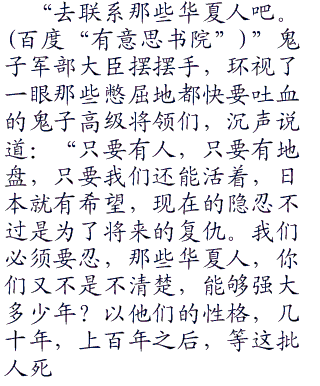 “去联系那些华夏人吧。
(百度“有意思书院”)”鬼
子军部大臣摆摆手，环视了
一眼那些憋屈地都快要吐血
的鬼子高级将领们，沉声说
道：“只要有人，只要有地
盘，只要我们还能活着，日
本就有希望，现在的隐忍不
过是为了将来的复仇。我们
必须要忍，那些华夏人，你
们又不是不清楚，能够强大
多少年？以他们的性格，几
十年，上百年之后，等这批
人死